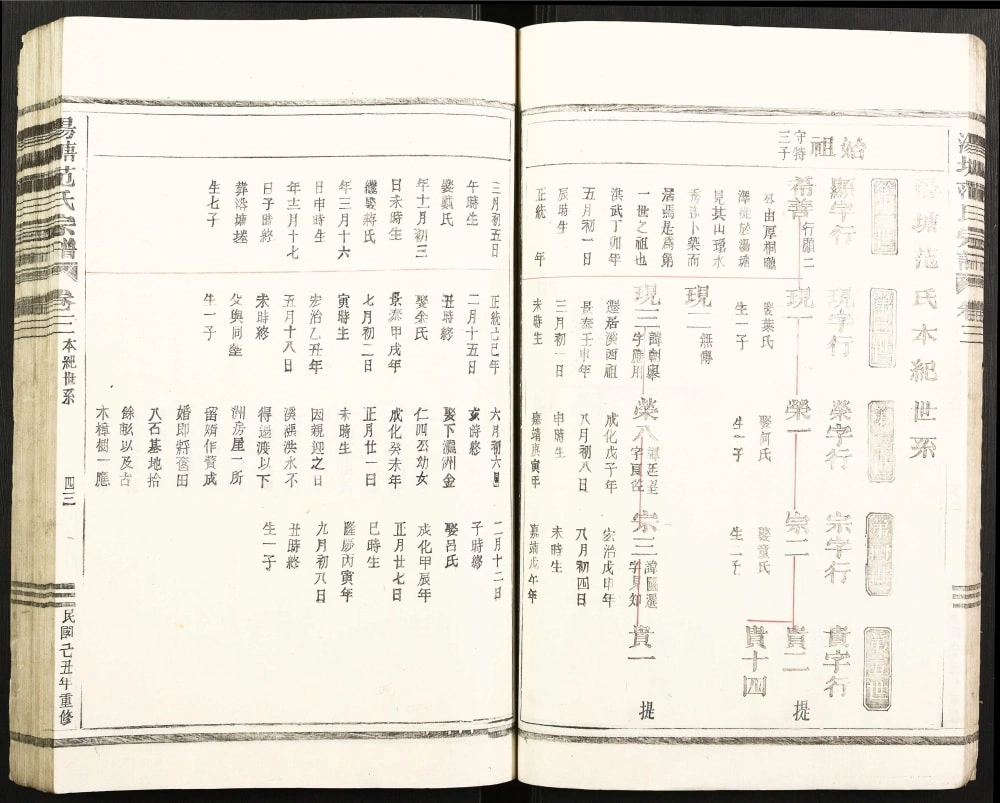 湯塘范氏本紀世系
始祖
守特
三子
顯字行
現字行
榮字行
宗字行
貴字行
希善
行顯二
公由厚桐
澤徙於湯塘
見其山環水
秀遂卜築而
居焉是爲第
一世之祖也
洪武丁卯年
五月初一日
辰時生
正統 年
三月初五日
午時生
娶戴氏
年十一月初三
日未時生
繼娶蔣氏
年三月十六
日申時生
年十二月十七
日子時終
葬沿塘塝
生七子
現一
娶葉氏
生一子
現二
無傳
現三
諱朝舉
字應用
遷居溪西祖
景泰壬申年
三月初一日
未時生
正統己巳年
二月十五日
丑時終
娶余氏
景泰甲戌年
七月初二日
寅時生
宏治乙丑年
五月十八日
未時終
公與同塋
生一子
榮一
娶何氏
生一子
榮八
成化戊子年
八月初八日
申時生
嘉靖庚寅年
六月初六日
亥時終
娶下灘洲金
仁四公幼女
成化癸未年
正月廿一日
未時生
因親迎之日
溪漲洪水不
得過渡以下
洲房屋一所
留婿作贅成
婚即將舊田
八石基地拾
餘畝以及古
木樟樹一應
宗二
娶童氏
生一子
宗三
諱國選
字良知
宏治戊申年
八月初四日
未時生
嘉靖戊午年
二月十二日
子時終
娶呂氏
成化甲辰年
正月廿七日
巳時生
隆慶丙寅年
九月初八日
丑時終
生一子
貴二
貴十四
提
貴一
提
湯塘范氏宗譜
卷三
本紀世系
四三
民國己丑年重修